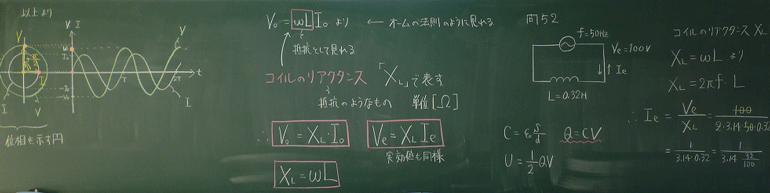 以上より
V I
V
t
I
V
I
位相を示す円
V₀ = ωL I₀ より ← オームの法則のように見れる
抵抗として見れる
コイルのリアクタンス 「X_L」で表す
抵抗のようなもの 単位[Ω]
∴ V₀ = X_L・I₀
Ve = X_L Ie
実効値も同様
X_L = ωL
問52
f=50Hz
Ve=100V
↑ Ie
L=0.32H
C = ε S/d Q=CV
U = 1/2 QV
コイルのリアクタンス X_L
X_L = ωL より
X_L = 2πf・L
∴ Ie = Ve/X_L = 100/2・3.14・50・0.32
= 1/3.14・0.32 = 1/3.14・32/100